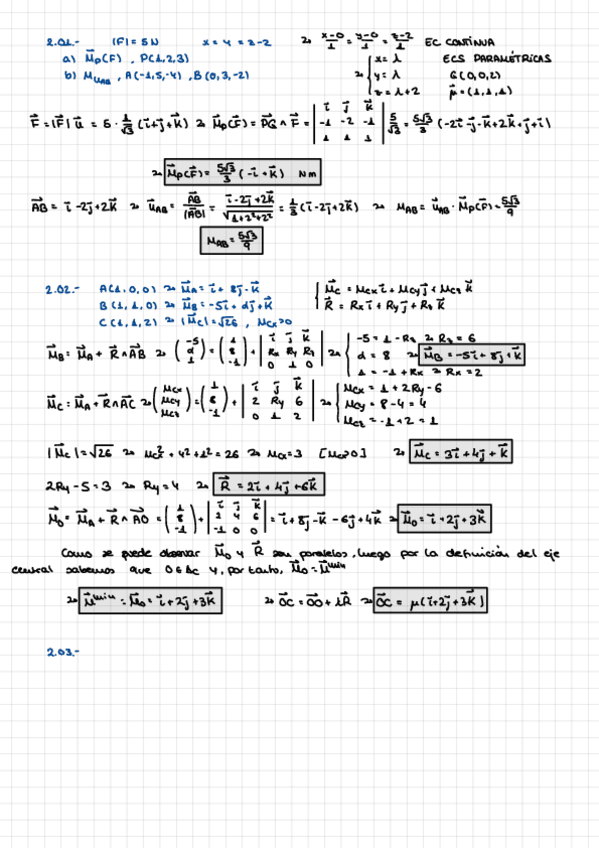 2.01.- |F| = 5N x = y = z-2 → x-0/1 = y-0/1 = z-2/1 EC CONTINUA
a) M⃗p(F), P(1,2,3) { x = λ ECS PARAMÉTRICAS
b) M_UAB, A(-1,5,-4), B(0,3,-2) → { y = λ G(0,0,2)
{ z = λ+2 μ⃗ = (1,1,1)
F⃗ = |F⃗| u⃗ = 5 · 1/√3 (i⃗+j⃗+k⃗) → M⃗p(F⃗) = PG⃗ ∧ F⃗ = | i⃗ j⃗ k⃗ ; -1 -2 -1 ; 1 1 1 | 5/√3 = 5√3/3 (-2i⃗-j⃗-k⃗+2k⃗+j⃗+i⃗)
→ M⃗p(F⃗) = 5√3/3 (-i⃗+k⃗) Nm
AB⃗ = i⃗-2j⃗+2k⃗ → u⃗AB = AB⃗/|AB⃗| = i⃗-2j⃗+2k⃗/√1+2²+2² = 1/3 (i⃗-2j⃗+2k⃗) → M_AB = u⃗AB · M⃗p(F⃗) = 5√3/9
M_AB = 5√3/9
2.02.- A(1,0,0) → M⃗A = i⃗+8j⃗-k⃗ { M⃗c = Mcx i⃗ + Mcy j⃗ + Mcz k⃗
B(1,1,0) → M⃗B = -5i⃗+dj⃗+k⃗ { R⃗ = Rx i⃗ + Ry j⃗ + Rz k⃗
C(1,1,2) → |M⃗c| = √26, Mcx>0
M⃗B = M⃗A + R⃗∧AB⃗ → (-5 ; d ; 1) = (1 ; 8 ; -1) + | i⃗ j⃗ k⃗ ; Rx Ry Rz ; 0 1 0 | → { -5 = 1-Rz → Rz = 6 ; d = 8 → M⃗B = -5i⃗+8j⃗+k⃗ ; 1 = -1+Rx → Rx = 2
M⃗c = M⃗A + R⃗∧AC⃗ → (Mcx ; Mcy ; Mcz) = (1 ; 8 ; -1) + | i⃗ j⃗ k⃗ ; 2 Ry 6 ; 0 1 2 | → { Mcx = 1+2Ry-6 ; Mcy = 8-4 = 4 ; Mcz = -1+2 = 1
|M⃗c| = √26 → Mcx²+4²+1² = 26 → Mcx = 3 [Mcx>0] → M⃗c = 3i⃗+4j⃗+k⃗
2Ry-5 = 3 → Ry = 4 → R⃗ = 2i⃗+4j⃗+6k⃗
M⃗o = M⃗A + R⃗∧AO⃗ = (1 ; 8 ; -1) + | i⃗ j⃗ k⃗ ; 2 4 6 ; -1 0 0 | = i⃗+8j⃗-k⃗ -6j⃗+4k⃗ → M⃗o = i⃗+2j⃗+3k⃗
Como se puede observar M⃗o y R⃗ son paralelos, luego por la definición del eje
central sabemos que O∈Δc y, por tanto, M⃗o = M⃗min
→ M⃗min = M⃗o = i⃗+2j⃗+3k⃗ → OC⃗ = OO⃗ + λR⃗ → OC⃗ = μ(i⃗+2j⃗+3k⃗)
2.03.-